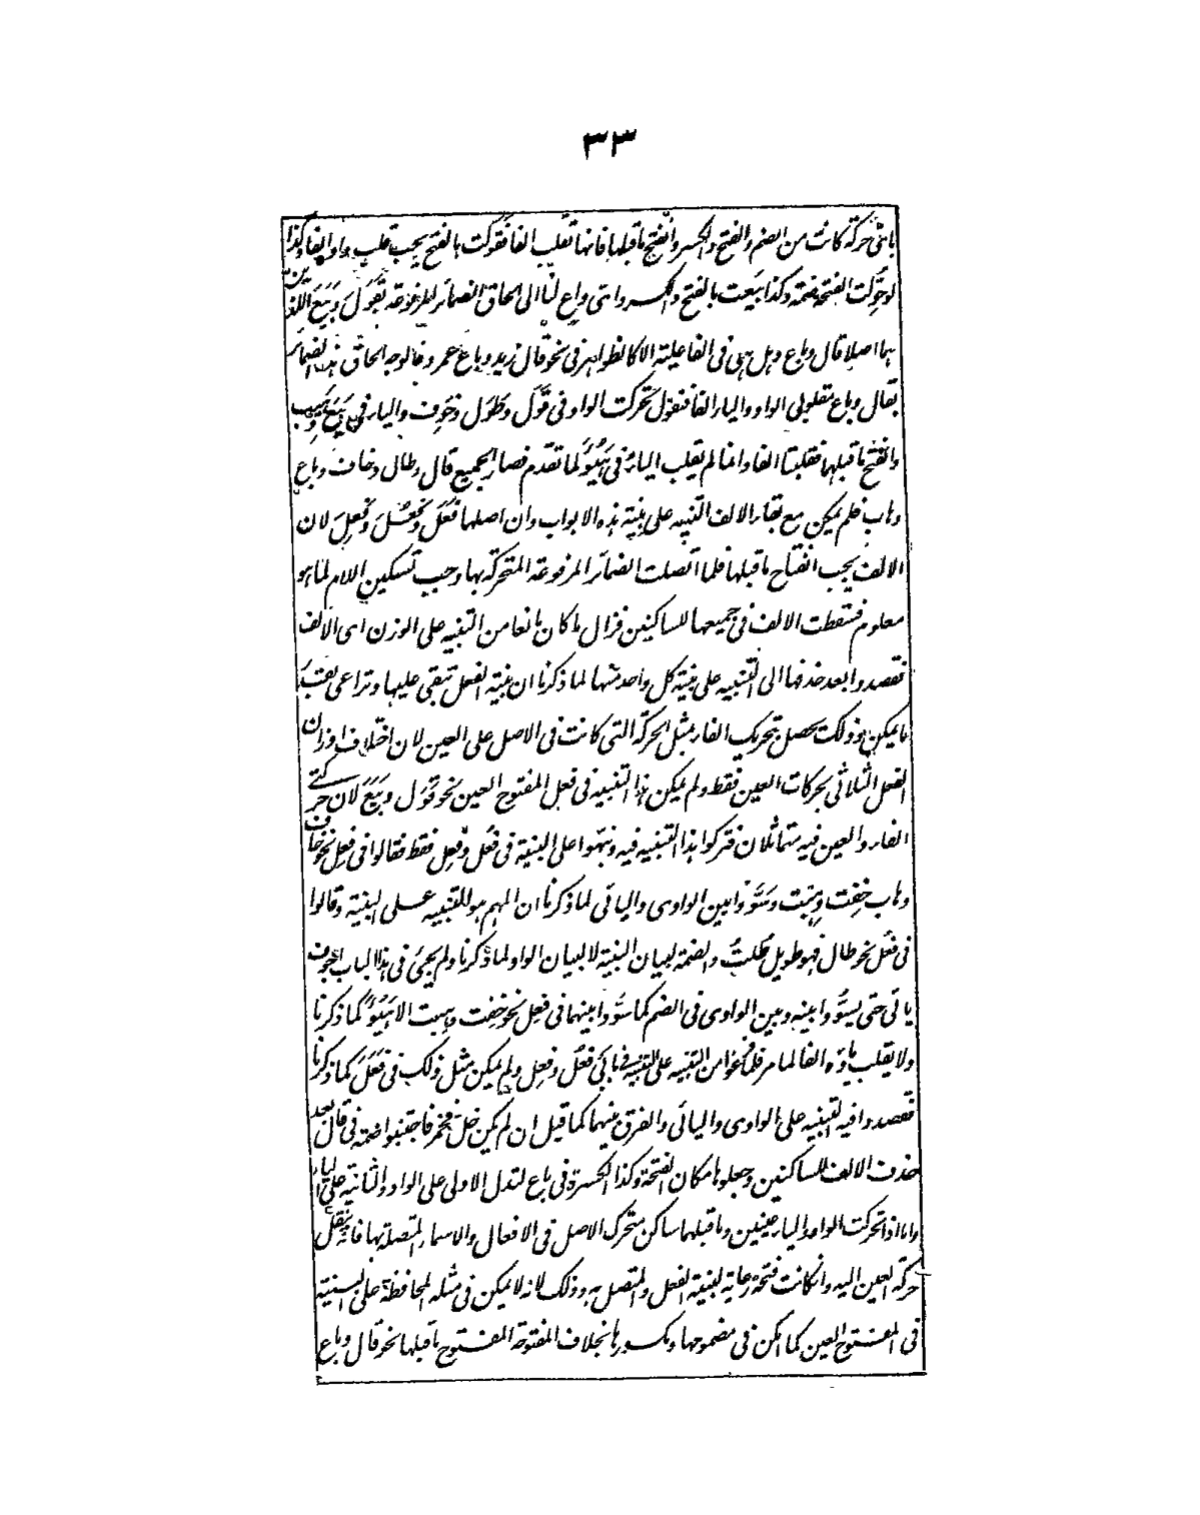 ٣٣
باىّ حركة كانت من الضم والفتح والكسر وانفتح ماقبلها فانها تقلب الفا فقولت بالفتح يجب قلب واو الفا وكذا
لو حركت الفتحة ضمة وكذا بيعت بالفتح والكسر واىّ داع لنا الى الحاق الضمائر المرفوعة بقول وبيع اللذين
هما اصلا قال وباع وهل هى فى الفاعلية الا كالظواهر فى نحو قال زيد وباع عمرو فالوجه الحاق هذه الضمائر
بقال وباع مقلوبى الواو والياء الفا فنقول تحركت الواو فى قول وطول وخوف والياء فى بيع وهيب
وانفتح ماقبلهما فقلبتا الفا وانما لم يقلب الياء فى هيؤ لما تقدم فصار الجميع قال وطال وخاف وباع
وهاب فلم يمكن مع بقاء الالف التنبيه على بنية هذه الابواب وان اصلها فعَل وفعُل وفعِل لان
الالف يجب انفتاح ماقبلها فلما اتصلت الضمائر المرفوعة المتحركة بها وجب تسكين اللام لما هو
معلوم فسقطت الالف فى جميعها للساكنين فزال ما كان مانعا من التنبيه على الوزن اى الالف
فقصدوا بعد حذفها الى التنبيه على بنية كل واحد منها لما ذكرنا ان بنية الفعل تبقى عليها وتراعى بقدر
ما يمكن وذلك يحصل بتحريك الفاء بمثل الحركة التى كانت فى الاصل على العين لان اختلاف اوزان
الفعل الثلاثى بحركات العين فقط ولم يمكن هذا التنبيه فى فعل المفتوح العين نحو قول وبيع لان حركتى
الفاء والعين فيه متماثلان فتركوا هذا التنبيه فيه ونبهوا على البنية فى فعُل وفعِل فقط فقالوا فى فعِل نحو خاف
وهاب خِفت وهِبت وسَوّوا بين الواوى واليائى لما ذكرنا ان المهم هو التنبيه على البنية وقالوا
فى فعُل نحو طال فهو طويل طُلت والضمة لبيان البنية لا لبيان الواو لما ذكرنا ولم يجئ فى هذا الباب اجوف
يائى حتى يسوّوا بينه وبين الواوى فى الضم كما سوّوا بينهما فى فعِل نحو خِفت وهِبت الا هَيُؤَ كما ذكرنا
ولا يقلب ياؤه الفا لما مر فلما فرغوا من التنبيه على البنية فى بابى فعُل وفعِل ولم يمكن مثل ذلك فى فعَل كما ذكرنا
قصدوا فيه التنبيه على الواوى واليائى والفرق بينهما كما قيل ان لم يكن خل فخمر فاجتنبوا ضمة فى قال بعد
حذف الالف للساكنين وجعلوها مكان الفتحة وكذا الكسرة فى باع لتدل الاولى على الواو والثانية على الياء
واما اذا تحركت الواو والياء عينين وماقبلهما ساكن متحرك الاصل فى الافعال والاسماء المتصلة بها فانه ينقل
حركة العين اليه وان كانت فتحة رعاية لبنية الفعل والمتصل به وذلك لانه لا يمكن فى مثله المحافظة على البنية
فى المفتوح العين كما امكن فى مضمومها ومكسورها بخلاف المفتوحة المفتوح ماقبلها نحو قال وباع